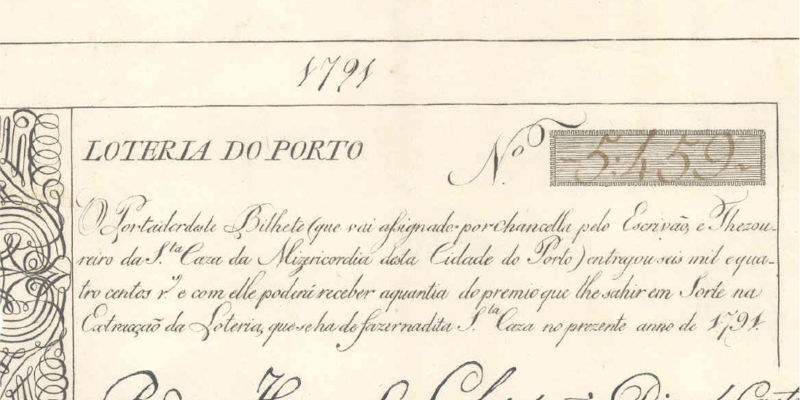 1791
LOTERIA DO PORTO
N.º 5:459.
O Portador deste Bilhete (que vai assignado por chancella pelo Escrivaõ, e Thezou-
reiro da S.ta Caza da Mizericordia desta Cidade do Porto) entregou seis mil e qua-
tro centos r.s e com elle poderá receber aquantia do premio que lhe sahir em Sorte na
Extracçaõ da Loteria, que se ha de fazer na dita S.ta Caza no prezente anno de 1791.